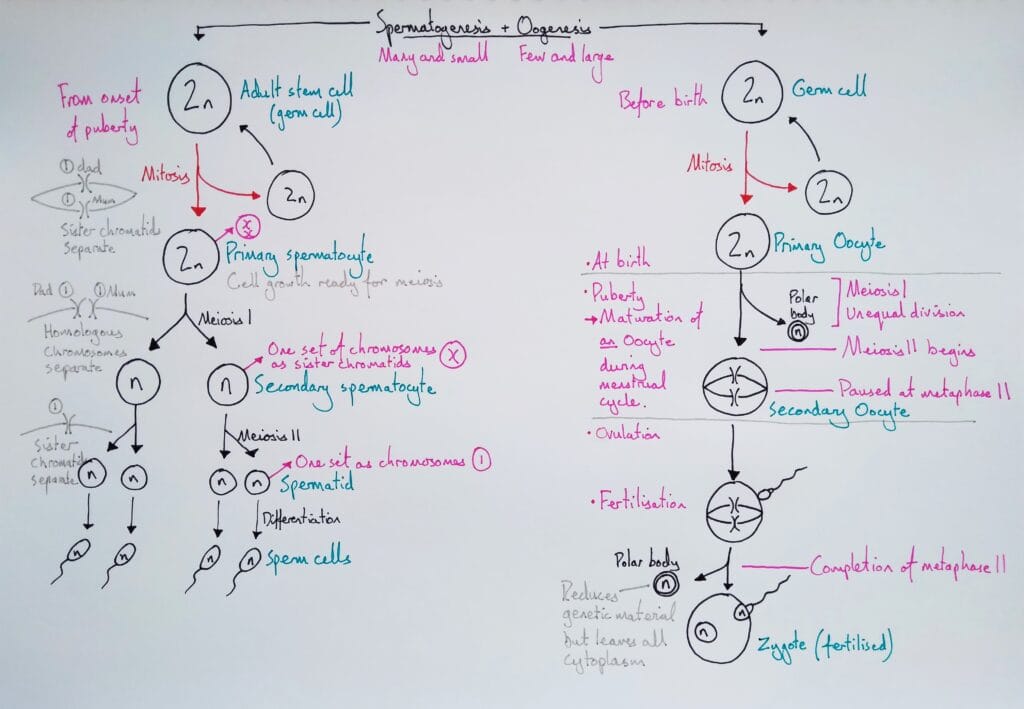 Spermatogenesis + Oogenesis
Many and small
Few and large
From onset
of puberty
2n
Adult stem cell
(germ cell)
Mitosis
2n
① dad
① Mum
Sister chromatids
separate
2n
XX
Primary spermatocyte
Cell growth ready for meiosis
Dad ① ① Mum
Homologous
chromosomes
separate
Meiosis I
n
n
One set of chromosomes
as sister chromatids X
Secondary spermatocyte
①
Sister
chromatids
separate
Meiosis II
n
n
n
n
One set as chromosomes ①
Spermatid
Differentiation
n
n
n
n
Sperm cells
Before birth
2n
Germ cell
Mitosis
2n
2n
Primary Oocyte
• At birth
• Puberty
→ Maturation of
an Oocyte
during
menstrual
cycle.
Polar
body
n
Meiosis I
Unequal division
Meiosis II begins
Paused at metaphase II
Secondary Oocyte
• Ovulation
• Fertilisation
Polar body
n
Completion of metaphase II
Reduces
genetic material
but leaves all
cytoplasm
n
n
Zygote (fertilised)